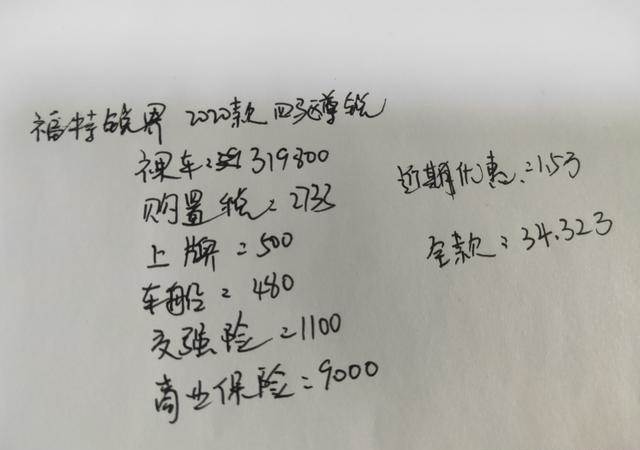 福特锐界 2020款 四驱尊锐
裸车:319800
购置税:2733
上牌:500
车船:480
交强险:1100
商业保险:9000
近期优惠:1.53
全款:34.323